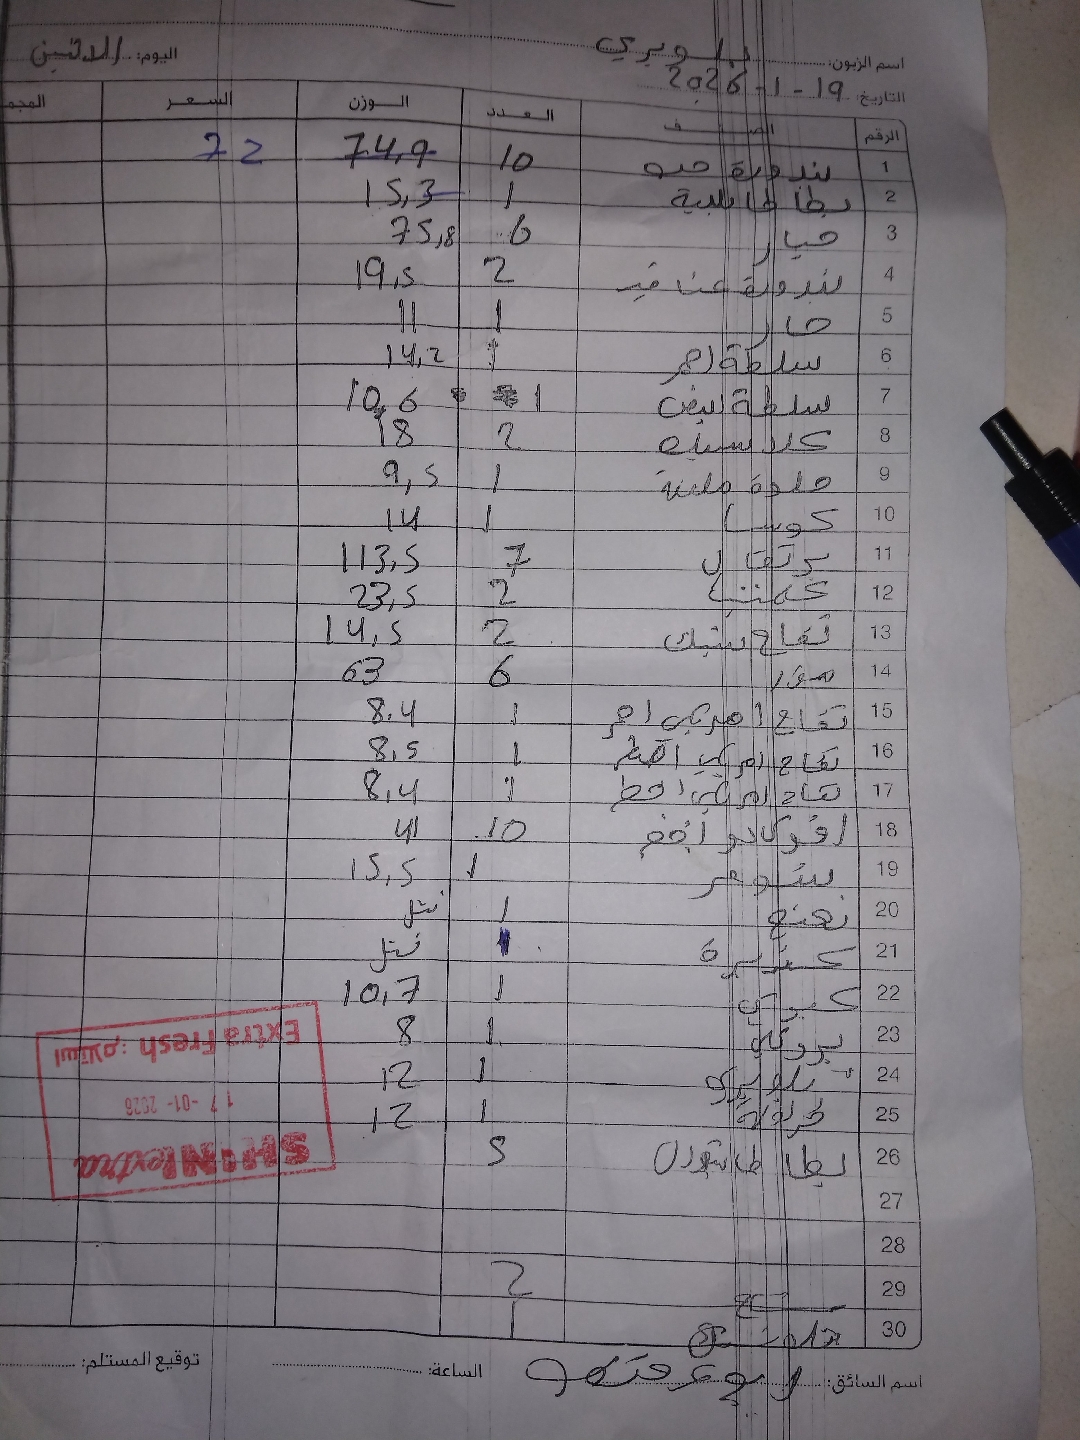 اسم الزبون: بلوبري اليوم: الاثنين
التاريخ: 19-1-2026
الرقم الصنف العدد الوزن السعر
1 بندورة حبه 10 74,9 72
2 بطاطا حلبية 1 15,3
3 خيار 6 75,8
4 بندورة عناقيد 2 19,5
5 حار 1 11
6 سلطة احمر 1 14,2
7 سلطة ابيض 1 10,6
8 2 18
9 حلوة ملينة 1 9,5
10 كوسا 1 14
11 برتقال 7 113,5
12 كمنتينا 2 23,5
13 تفاح سنبك 2 14,5
14 موز 6 63
15 تفاح امريكي احمر 1 8.4
16 تفاح امريكي اصفر 1 8,5
17 تفاح امريكي اخضر 1 8,4
18 افوكادو اخضر 10 41
19 بوملي 1 15,5
20 نعنع 1 شتل
21 كزبرة 1 شتل
22 1 10,7
23 بروكلي 1 8
24 بلوبيري 1 12
25 فراولة 1 12
26 بطاطا 5
27
28
29 2
30 1
اسم السائق: ابو عرفة الساعة: توقيع المستلم:
Extra Fresh استلام:
17-01-2026
SHINI extra